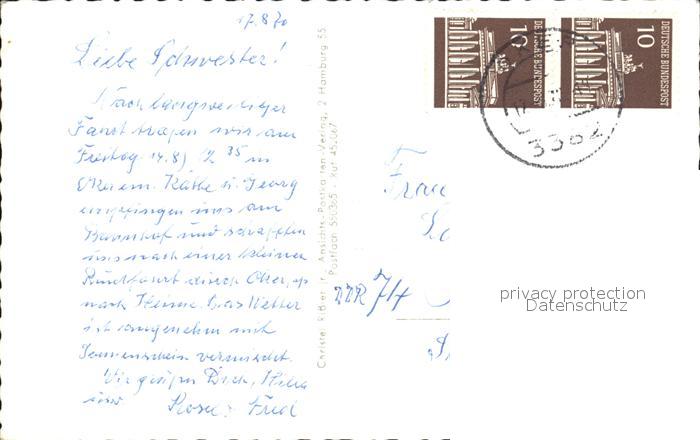 17.8.70
Liebe Schwester!
Nach langweiliger
Fahrt trafen wir am
Freitag 14.8, 12 35 in
Oker ein. Käthe u. Georg
empfingen uns am
Bahnhof und
uns nach einer kleinen
Rundfahrt durch Oker,
nach Hause. Das Wetter
ist angenehm mit
Sonnenschein vermischt.
Wir grüßen Dich,
Fred
Christel Ansichts-Postkarten-Verlag, 2 Hamburg 55
Postfach 550365 · Ruf 452067
DEUTSCHE BUNDESPOST
10
DEUTSCHE BUNDESPOST
10
3382
Frau
DDR 74
privacy protection
Datenschutz